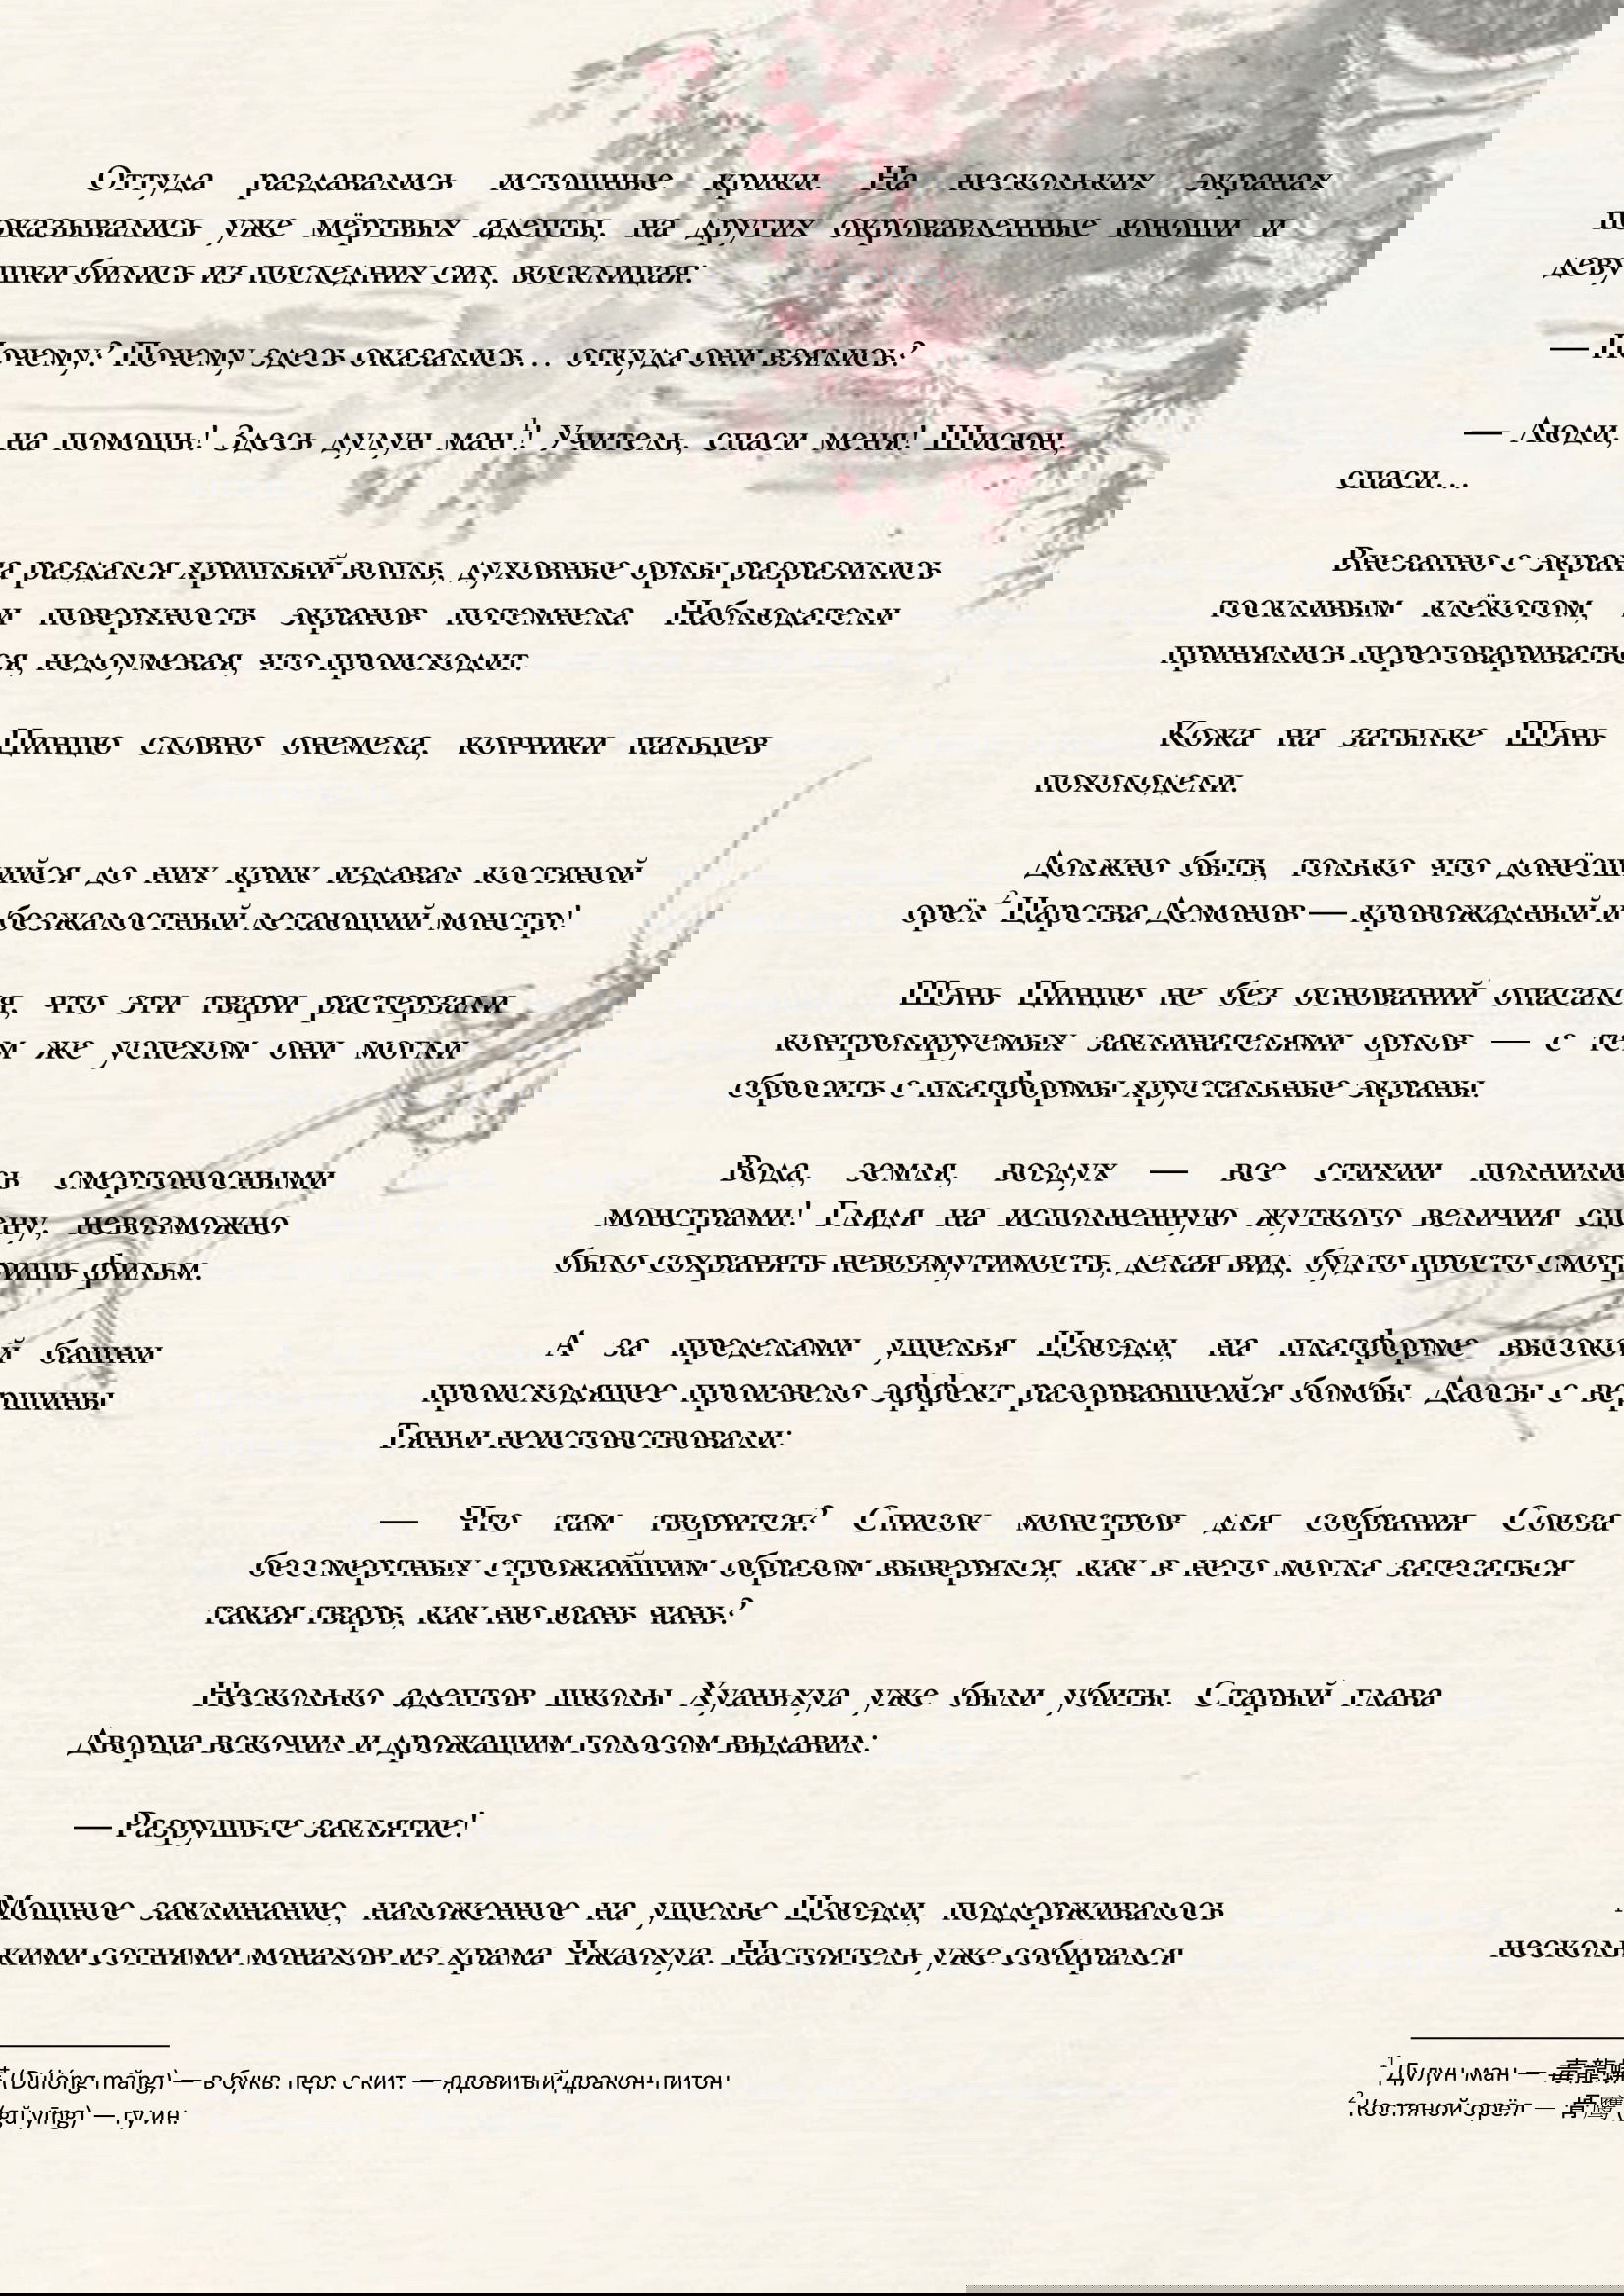 Оттуда раздавались истошные крики. На нескольких экранах
показывались уже мёртвых адепты, на других окровавленные юноши и
девушки бились из последних сил, восклицая:
— Почему? Почему здесь оказались… откуда они взялись?
— Люди, на помощь! Здесь дулун ман¹! Учитель, спаси меня! Шисюн,
спаси…
Внезапно с экрана раздался хриплый вопль, духовные орлы разразились
тоскливым клёкотом, и поверхность экранов потемнела. Наблюдатели
принялись переговариваться, недоумевая, что происходит.
Кожа на затылке Шэнь Цинцю словно онемела, кончики пальцев
похолодели.
Должно быть, только что донёсшийся до них крик издавал костяной
орёл² Царства Демонов — кровожадный и безжалостный летающий монстр!
Шэнь Цинцю не без оснований опасался, что эти твари растерзали
контролируемых заклинателями орлов — с тем же успехом они могли
сбросить с платформы хрустальные экраны.
Вода, земля, воздух — все стихии полнились смертоносными
монстрами! Глядя на исполненную жуткого величия сцену, невозможно
было сохранять невозмутимость, делая вид, будто просто смотришь фильм.
А за пределами ущелья Цзюэди, на платформе высокой башни
происходящее произвело эффект разорвавшейся бомбы. Даосы с вершины
Тяньи неистовствовали:
— Что там творится? Список монстров для собрания Союза
бессмертных строжайшим образом выверялся, как в него могла затесаться
такая тварь, как ню юань чань?
Несколько адептов школы Хуаньхуа уже были убиты. Старый глава
Дворца вскочил и дрожащим голосом выдавил:
— Разрушьте заклятие!
Мощное заклинание, наложенное на ущелье Цзюэди, поддерживалось
несколькими сотнями монахов из храма Чжаохуа. Настоятель уже собирался
¹ Дулун ман — 毒龍蟒 (Dúlóng mǎng) — в букв. пер. с кит. — «ядовитый дракон-питон»
² Костяной орёл — 骨鹰 (gǔ yīng) — гу ин.